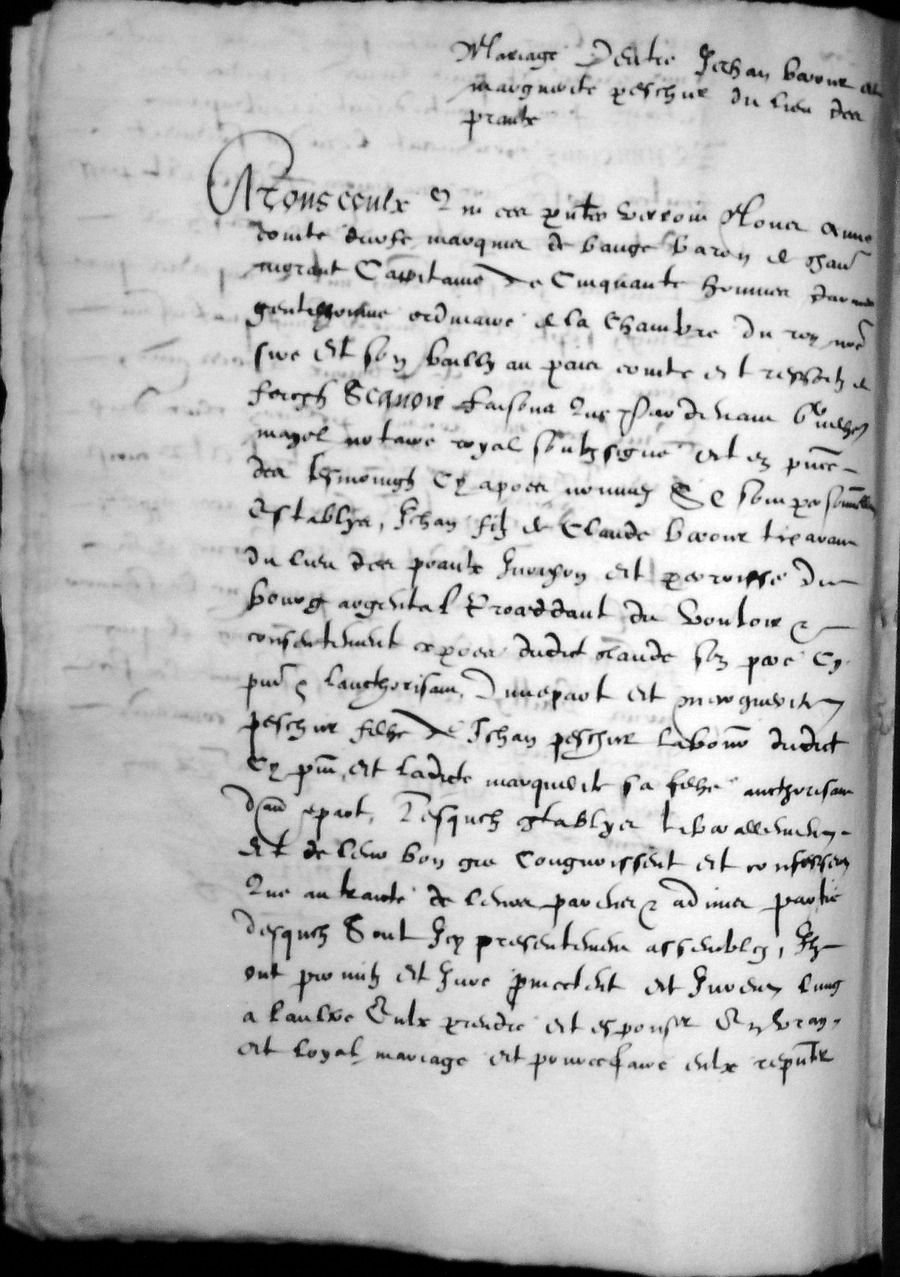 Mariage d'entre Jehan Verour et
marguerite peschier du lieu des
praulx
A tous ceulx qui ces pntes verront Honor
comte durfe marquis de bauge baron de chau
morant Cappitaine de Cinquante hommes darmes
gentilhomme ordinaire de la chambre du roy nre
sire et son bailly au pais comte et ressortz de
forestz Scavoir faisons que Pardevant
notaire royal soubzsigne et en pnce
des tesmoingz Cy apres nommez Se sont personnellem
Establys, Jehan filz de Claude Verour
du lieu des praulx et parroisse du
bourg argental du vouloir &
consentement expres dudict glaude son pere Cy
pnt & lauthorisant, Dunepart et marguerite
peschier filhe de Jehan peschier laboureur dudict
Cy pnt, et ladicte marguerite sa filhe authorisant
Dau epart, Lesquelz establyes liberallement
Et de leur bon gre Congnoissent et confessent
Que au traicte de leurs parens & admis partie
desquelz Sont Icy presentement assemblez, Ilz
ont promis et Jure promectent et Jurent lung
a laultre Eulx prendre et espouser En vray
et loyal mariage et pource faire eulx repnter